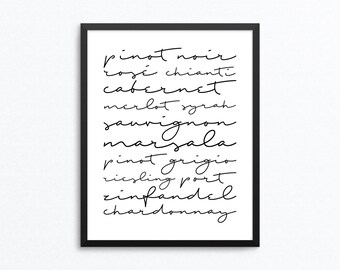 pinot noir
rosé chianti
cabernet
merlot syrah
sauvignon
marsala
pinot grigio
riesling port
zinfandel
chardonnay